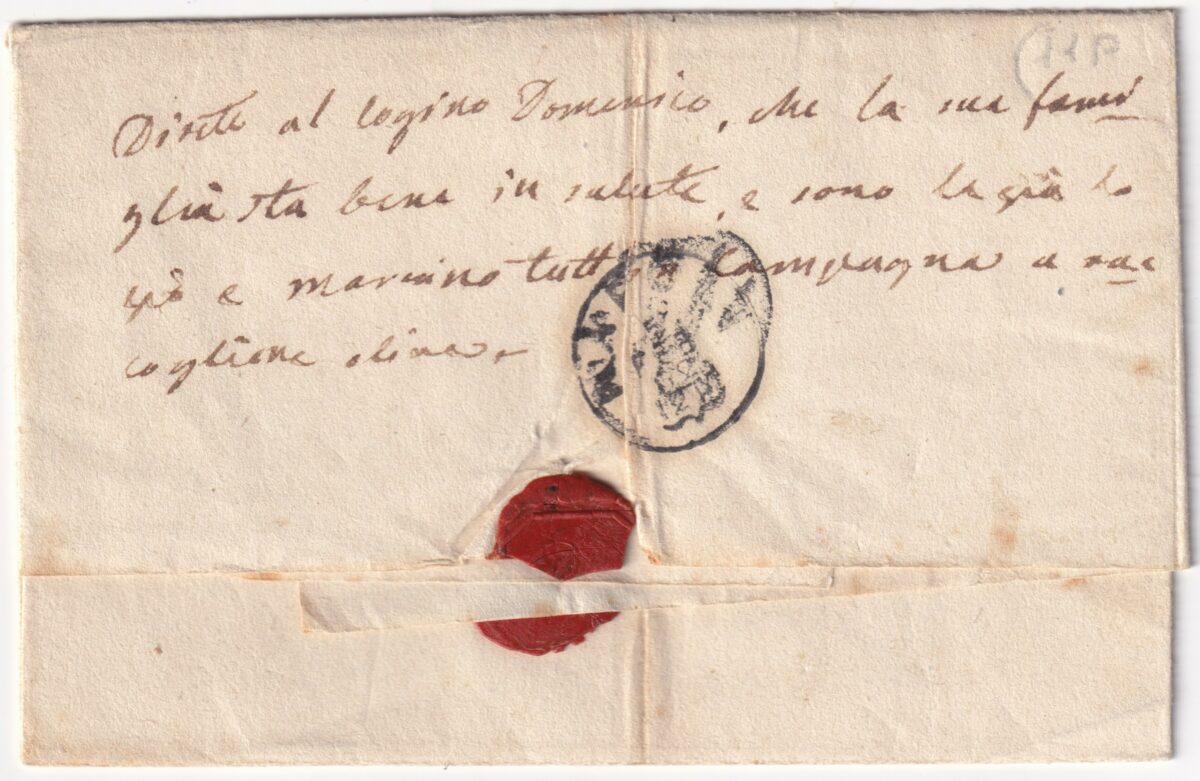 11P
Direte al Cogino Domenico, che la sua fami
glia sta bene in salute, e sono la già lo
e marcino tutti in Campagna a rac
cogliere olive.